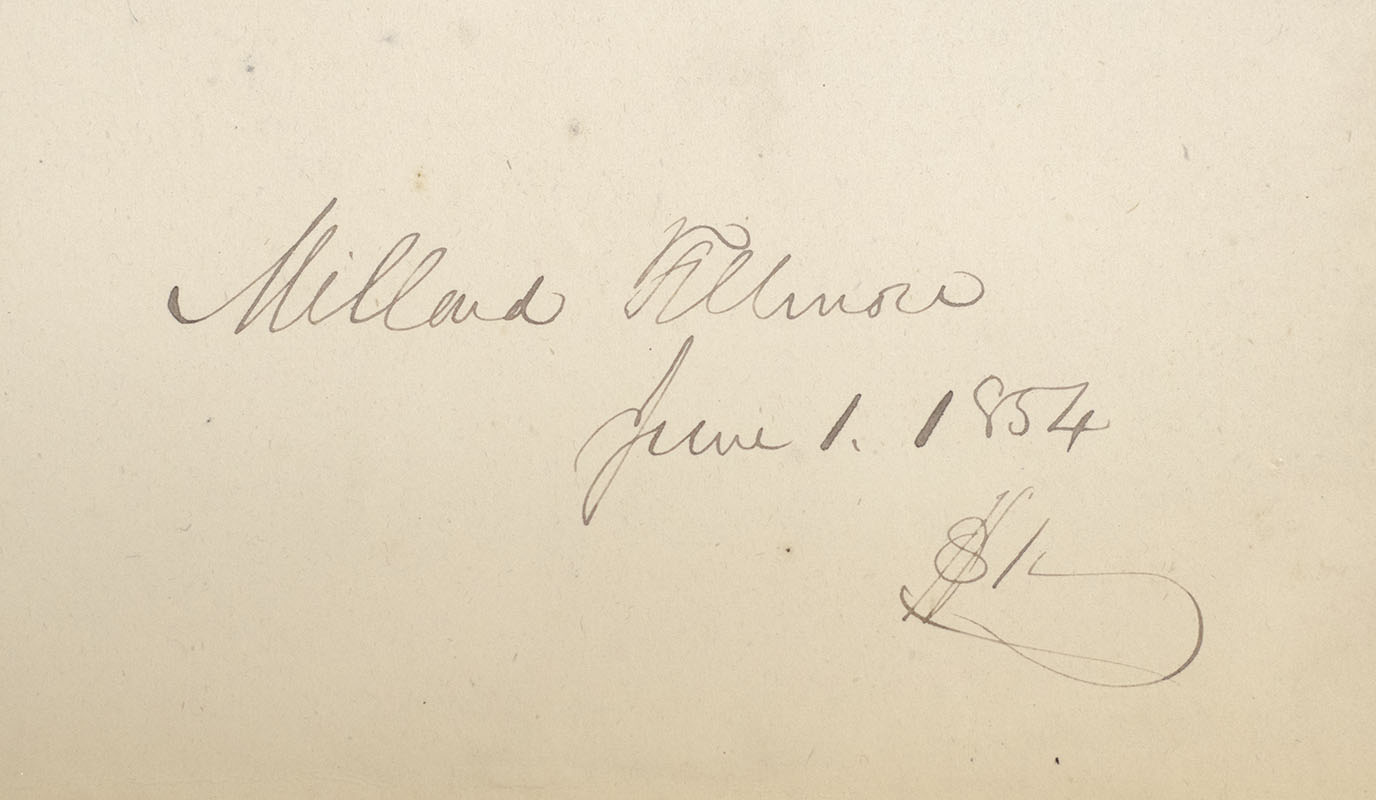 Millard Fillmore
June 1. 1854
$1